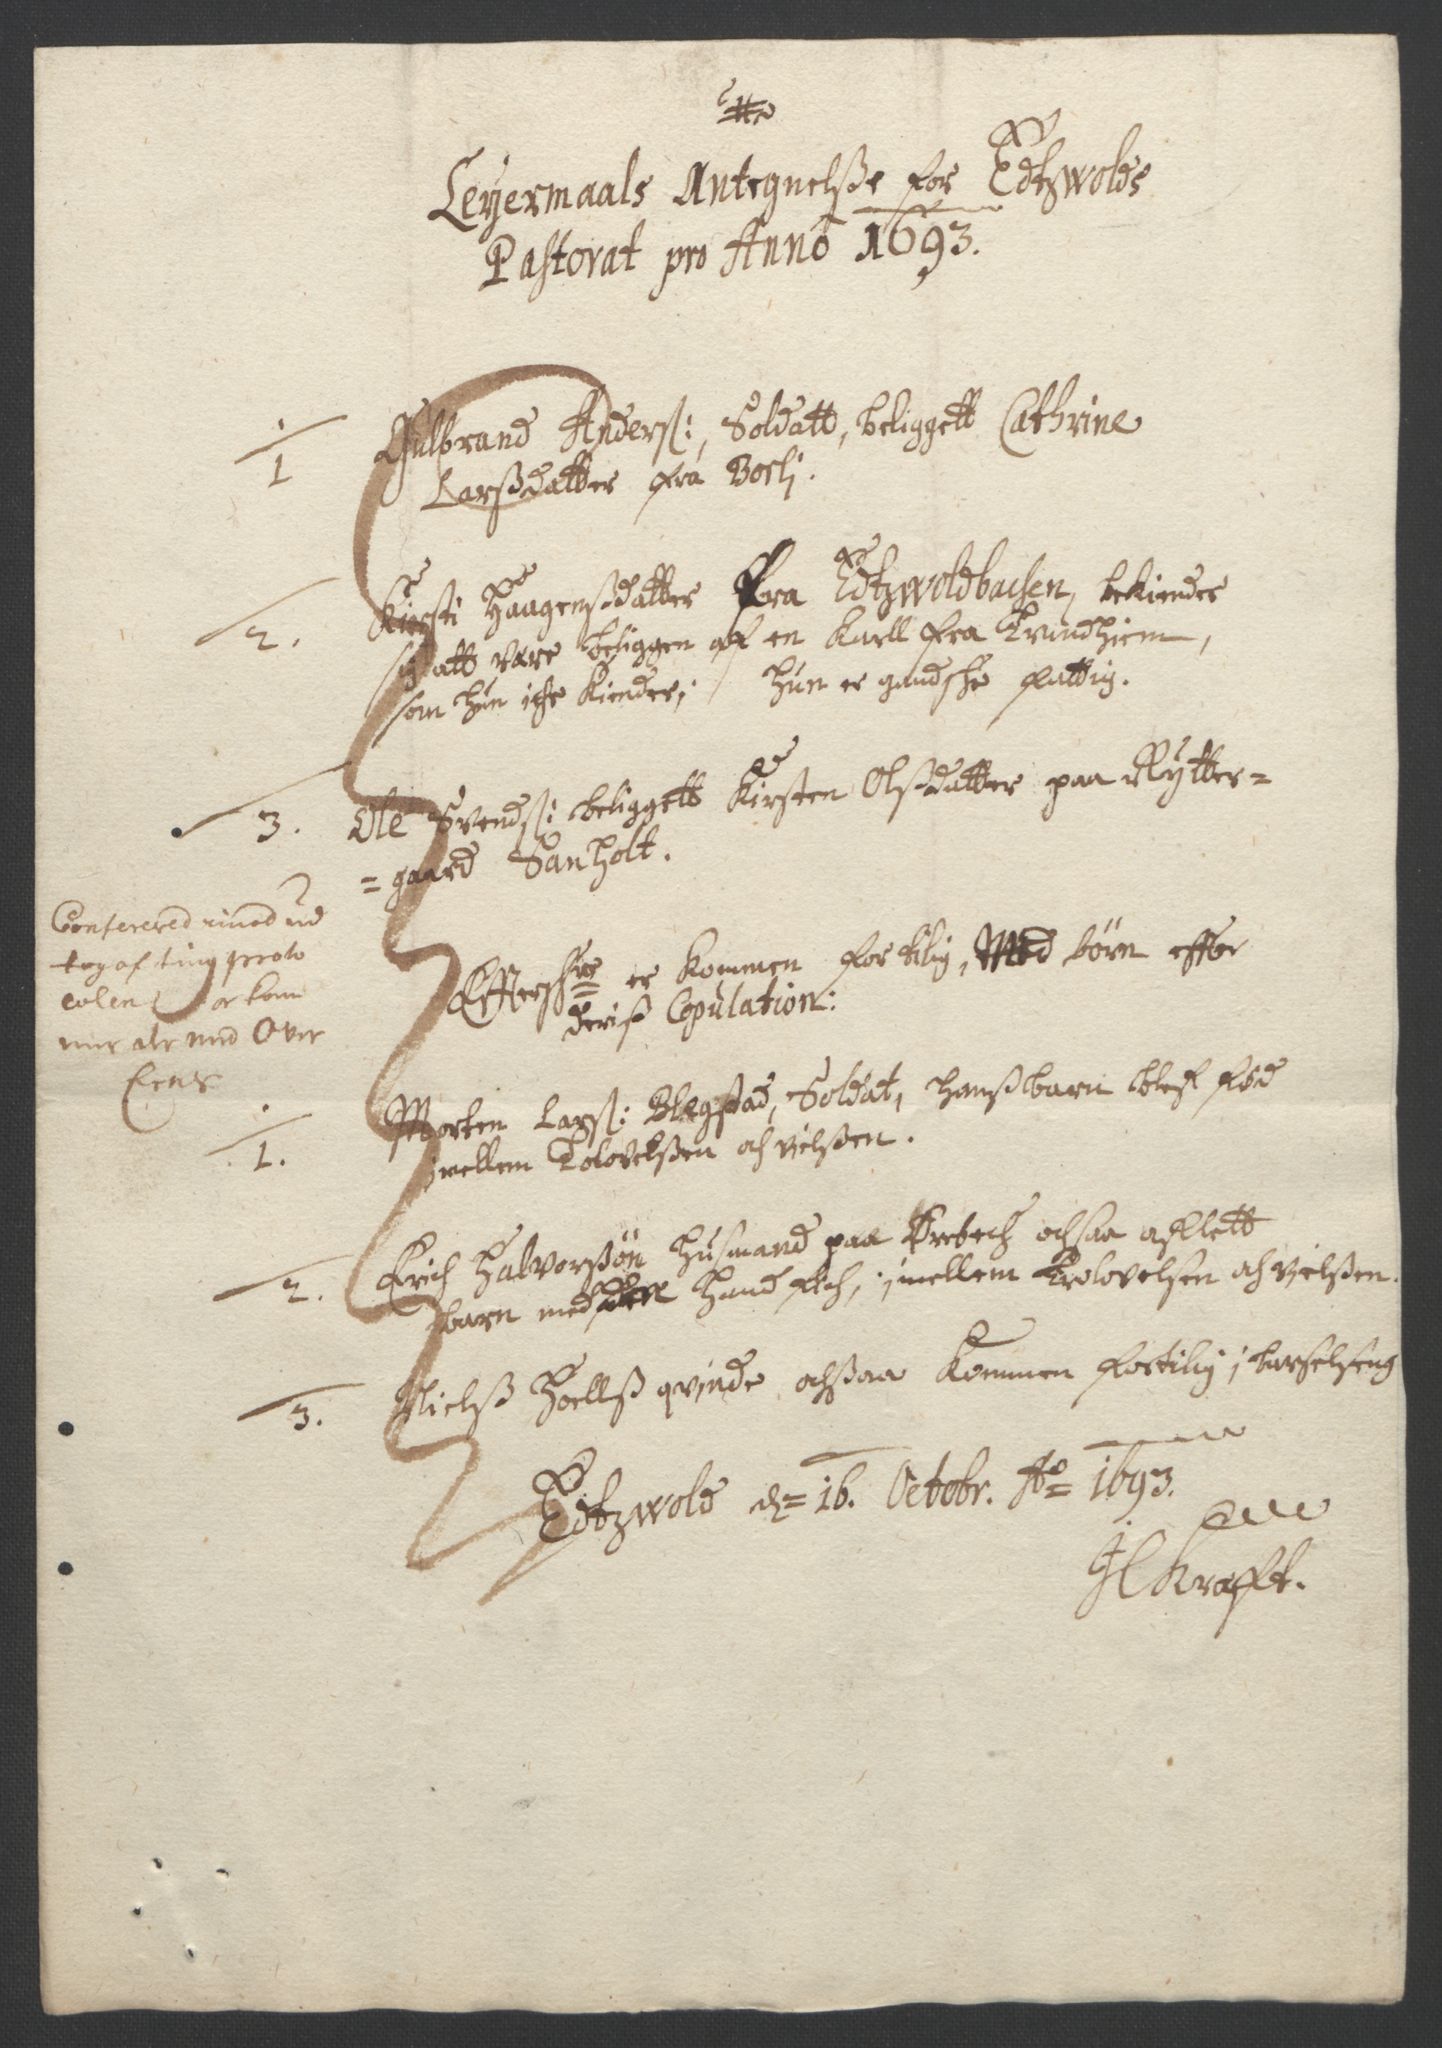 Leyermaals Antegnelsse for Edtzwolds
Pastorat pro Anno 1693.
1 Gulbrand Anderss: Soldatt, beliggett Cathrine
Larssdatter fra Boeli.
2. Kirsti Haagenssdatter fra Edtzwoldbachen, bekiender
sig att være beliggen af en Karll fra Trundhiem,
som hun iche kiender; hun er gandsche fattig.
3. Ole Svendss: beliggett Kirsten Olssdatter paa Rytter=
=gaard Sanholt.
Confereret imod ud
tog af ting proto
colen
mer alt med Over
Eens
Effterschrne er kommen for tilig, Med børn effter
deriss Copulation:
1. Morten Larss: Blegstad, Soldat, hanss barn bleff fød
imellem Trolovelssen och vielssen.
2. Erich Halvorssøn Huusmand paa Ørbech ochsaa afflett
barn med den hand fech, imellem Trolovelsen och vielssen.
3. Nielss Hoellss qvinde ochssaa kommen fortilig i barselseng
Edtzwold d= 16. Octobr. Ao= 1693.
JC Krafft.